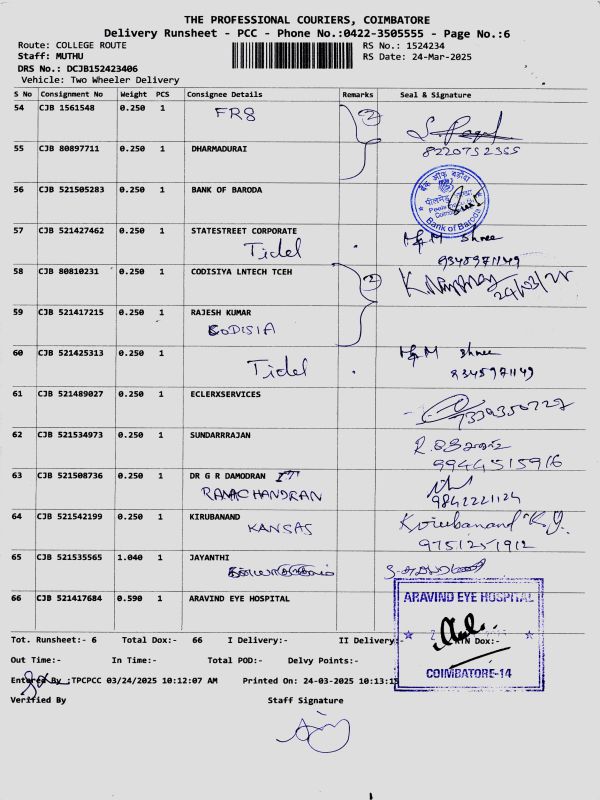 THE PROFESSIONAL COURIERS, COIMBATORE
Delivery Runsheet - PCC - Phone No.:0422-3505555 - Page No.:6
Route: COLLEGE ROUTE
RS No.: 1524234
Staff: MUTHU
RS Date: 24-Mar-2025
DRS No.: DCJB152423406
Vehicle: Two Wheeler Delivery
S No Consignment No Weight PCS Consignee Details Remarks Seal & Signature
54 CJB 1561548 0.250 1 FR8 2
8220752355
55 CJB 80897711 0.250 1 DHARMADURAI
56 CJB 521505283 0.250 1 BANK OF BARODA
Bank of Baroda
57 CJB 521427462 0.250 1 STATESTREET CORPORATE
Tidel
9345971149
58 CJB 80810231 0.250 1 CODISIYA LNTECH TCEH 2
24/03/25
59 CJB 521417215 0.250 1 RAJESH KUMAR
CODISIA
60 CJB 521425313 0.250 1 Tidel
9345971149
61 CJB 521489027 0.250 1 ECLERXSERVICES
62 CJB 521534973 0.250 1 SUNDARRRAJAN
9944515916
63 CJB 521508736 0.250 1 DR G R DAMODRAN IT
RAMACHANDRAN
9842221124
64 CJB 521542199 0.250 1 KIRUBANAND Kirubanand K.J.
KANSAS
9751251912
65 CJB 521535565 1.040 1 JAYANTHI
66 CJB 521417684 0.590 1 ARAVIND EYE HOSPITAL
ARAVIND EYE HOSPITAL
COIMBATORE-14
Tot. Runsheet:- 6 Total Dox:- 66 I Delivery:- II Delivery:- Dox:-
Out Time:- In Time:- Total POD:- Delvy Points:-
Entered By :TPCPCC 03/24/2025 10:12:07 AM Printed On: 24-03-2025 10:13:15
Verified By Staff Signature